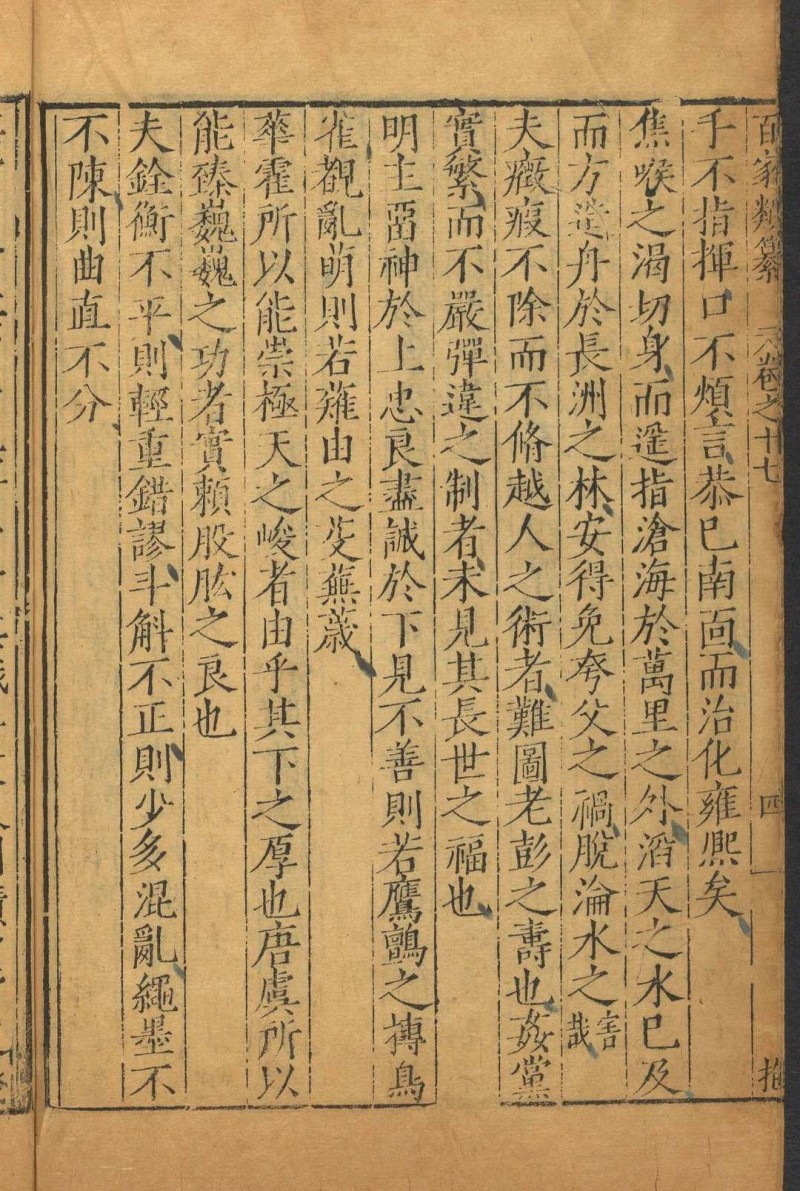 百家類纂 卷之十七 四
手不指揮口不煩言恭己南面而治化雍熙矣
焦喉之渴切身而遙指滄海於萬里之外滔天之水已及
而方造舟於長洲之林安得免夸父之禍脫淪水之害哉
夫癥瘕不除而不脩越人之術者難圖老彭之壽也姦黨
實繁而不嚴彈違之制者未見其長世之福也
明主畱神於上忠良盡誠於下見不善則若鷹鸇之搏鳥
雀覩亂萌則若薙由之芟蕪薉
華霍所以能崇極天之峻者由乎其下之厚也唐虞所以
能臻巍巍之功者實賴股肱之良也
夫銓衡不平則輕重錯謬斗斛不正則少多混亂繩墨不
不陳則曲直不分